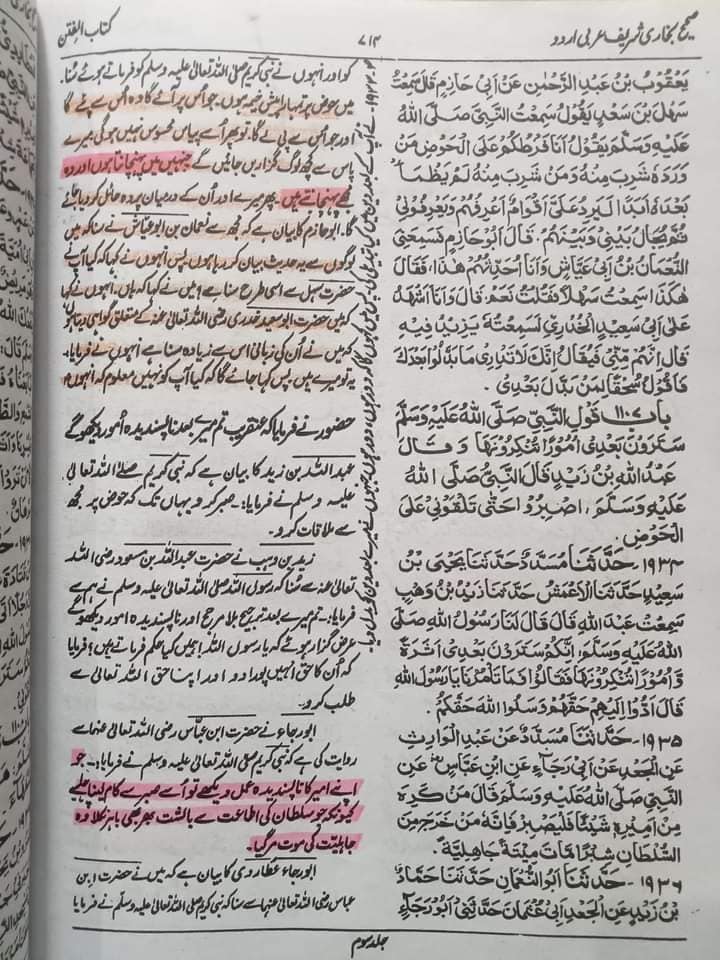 صحیح بخاری شریف عربی اردو
۷۱۳
کتاب الفتن
يَعْقُوبُ بْنُ عَبْدِ الرَّحْمٰنِ عَنْ اَبِیْ حَازِمٍ قَالَ سَمِعْتُ
سَهْلَ بْنَ سَعْدٍ يَقُوْلُ سَمِعْتُ النَّبِيَّ صَلَّى اللهُ
عَلَيْهِ وَسَلَّمَ يَقُوْلُ اَنَا فَرَطُكُمْ عَلَى الْحَوْضِ مَنْ
وَرَدَهُ شَرِبَ مِنْهُ وَمَنْ شَرِبَ مِنْهُ لَمْ يَظْمَأْ
بَعْدَهُ اَبَدًا لَيَرِدُ عَلَيَّ اَقْوَامٌ اَعْرِفُهُمْ وَيَعْرِفُوْنِيْ
ثُمَّ يُحَالُ بَيْنِيْ وَبَيْنَهُمْ. قَالَ اَبُوْ حَازِمٍ فَسَمِعَنِي
النُّعْمَانُ بْنُ اَبِيْ عَيَّاشٍ وَاَنَا اُحَدِّثُهُمْ هٰذَا، فَقَالَ
هٰكَذَا سَمِعْتَ سَهْلًا فَقُلْتُ نَعَمْ. قَالَ وَاَنَا اَشْهَدُ
عَلٰى اَبِيْ سَعِيْدٍ الْخُدْرِيِّ لَسَمِعْتُهُ يَزِيْدُ فِيْهِ
قَالَ اِنَّهُمْ مِنِّيْ فَيُقَالُ اِنَّكَ لَا تَدْرِيْ مَا بَدَّلُوْا بَعْدَكَ
فَاَقُوْلُ سُحْقًا لِمَنْ بَدَّلَ بَعْدِيْ.
بَابُ ۱۱۰۷ قَوْلِ النَّبِيِّ صَلَّى اللهُ عَلَيْهِ وَسَلَّمَ
سَتَرَوْنَ بَعْدِيْ اُمُوْرًا تُنْكِرُوْنَهَا وَقَالَ
عَبْدُ اللهِ بْنُ زَيْدٍ قَالَ النَّبِيُّ صَلَّى اللهُ
عَلَيْهِ وَسَلَّمَ، اصْبِرُوْا حَتّٰى تَلْقَوْنِيْ عَلَى
الْحَوْضِ.
۱۹۳۴- حَدَّثَنَا مُسَدَّدٌ حَدَّثَنَا يَحْيَى بْنُ
سَعِيْدٍ حَدَّثَنَا الْاَعْمَشُ حَدَّثَنَا زَيْدُ بْنُ وَهْبٍ
سَمِعْتُ عَبْدَ اللهِ قَالَ قَالَ لَنَا رَسُوْلُ اللهِ صَلَّى
اللهُ عَلَيْهِ وَسَلَّمَ، اِنَّكُمْ سَتَرَوْنَ بَعْدِيْ اَثَرَةً
وَّاُمُوْرًا تُنْكِرُوْنَهَا قَالُوْا فَمَا تَأْمُرُنَا يَا رَسُوْلَ اللهِ
قَالَ اَدُّوْا اِلَيْهِمْ حَقَّهُمْ وَسَلُوا اللهَ حَقَّكُمْ.
۱۹۳۵- حَدَّثَنَا مُسَدَّدٌ عَنْ عَبْدِ الْوَارِثِ
عَنِ الْجَعْدِ عَنْ اَبِيْ رَجَاءٍ عَنِ ابْنِ عَبَّاسٍ عَنِ
النَّبِيِّ صَلَّى اللهُ عَلَيْهِ وَسَلَّمَ قَالَ مَنْ كَرِهَ
مِنْ اَمِيْرِهٖ شَيْئًا فَلْيَصْبِرْ فَاِنَّهُ مَنْ خَرَجَ مِنَ
السُّلْطَانِ شِبْرًا مَاتَ مِيْتَةً جَاهِلِيَّةً.
۱۹۳۶- حَدَّثَنَا اَبُو النُّعْمَانِ حَدَّثَنَا حَمَّادُ
بْنُ زَيْدٍ عَنِ الْجَعْدِ اَبِيْ عُثْمَانَ حَدَّثَنِيْ اَبُوْ رَجَاءٍ
کو اور انہوں نے نبی کریم صلی اللہ تعالیٰ علیہ وسلم کو فرماتے ہوئے سنا۔
میں حوض پر تمہارا پیش خیمہ ہوں۔ جو اس پر آئے گا وہ اُس سے پئے گا
اور جو اس سے پی لے گا۔ تو پھر اُسے پیاس محسوس نہیں ہوگی میرے
پاس سے کچھ لوگ گزارے جائیں گے جنہیں میں پہچانتا ہوں اور وہ
مجھے پہچانتے ہیں۔ پھر میرے اور اُن کے درمیان پردہ حائل کر دیا جائے
گا۔ ابو حازم کا بیان ہے کہ مجھ سے نعمان بن ابو عیاش نے سنا کہ میں
لوگوں سے یہ حدیث بیان کر رہا ہوں پس انہوں نے کہا کہ کیا آپ نے
حضرت سہل سے اسی طرح سنا ہے؟ میں نے کہا کہ ہاں۔ انہوں نے کہا
کہ میں حضرت ابو سعید خدری رضی اللہ تعالیٰ عنہ کے متعلق گواہی دیتا ہوں
کہ میں نے اُن کی زبانی اس سے زیادہ سنا ہے انہوں نے فرمایا:۔
یہ تو میرے ہیں۔ پس کہا جائے گا کہ کیا آپ کو نہیں معلوم کہ انہوں
حضور نے فرمایا کہ عنقریب تم میرے بعد ناپسندیدہ اُمور دیکھو گے
عبداللہ بن زید کا بیان ہے کہ نبی کریم صلی اللہ تعالیٰ
علیہ وسلم نے فرمایا:۔ صبر کرو یہاں تک کہ حوض پر مجھ
سے ملاقات کرو۔
زید بن وہب نے حضرت عبداللہ بن مسعود رضی اللہ
تعالیٰ عنہ سے سنا کہ رسول اللہ صلی اللہ تعالیٰ علیہ وسلم نے ہم سے
فرمایا:۔ تم میرے بعد ترجیح بلا مرجح اور ناپسندیدہ امور دیکھو گے
عرض گزار ہوئے کہ یا رسول اللہ! ہمیں کیا حکم فرماتے ہیں؟ فرمایا
کہ اُن کا حق انہیں پورا دو اور اپنا حق اللہ تعالیٰ سے
طلب کرو۔
ابو رجاء نے حضرت ابن عباس رضی اللہ تعالیٰ عنہما سے
روایت کی ہے کہ نبی کریم صلی اللہ تعالیٰ علیہ وسلم نے فرمایا:۔ جو
اپنے امیر کا ناپسندیدہ عمل دیکھے تو اُسے صبر سے کام لینا چاہیے
کیونکہ جو سلطان کی اطاعت سے بالشت بھر بھی باہر نکلا وہ
جاہلیت کی موت مر گیا۔
ابو رجاء عطاردی کا بیان ہے کہ میں نے حضرت ابن
عباس رضی اللہ تعالیٰ عنہما سے سنا کہ نبی کریم صلی اللہ تعالیٰ علیہ وسلم نے فرمایا
جلد سوم